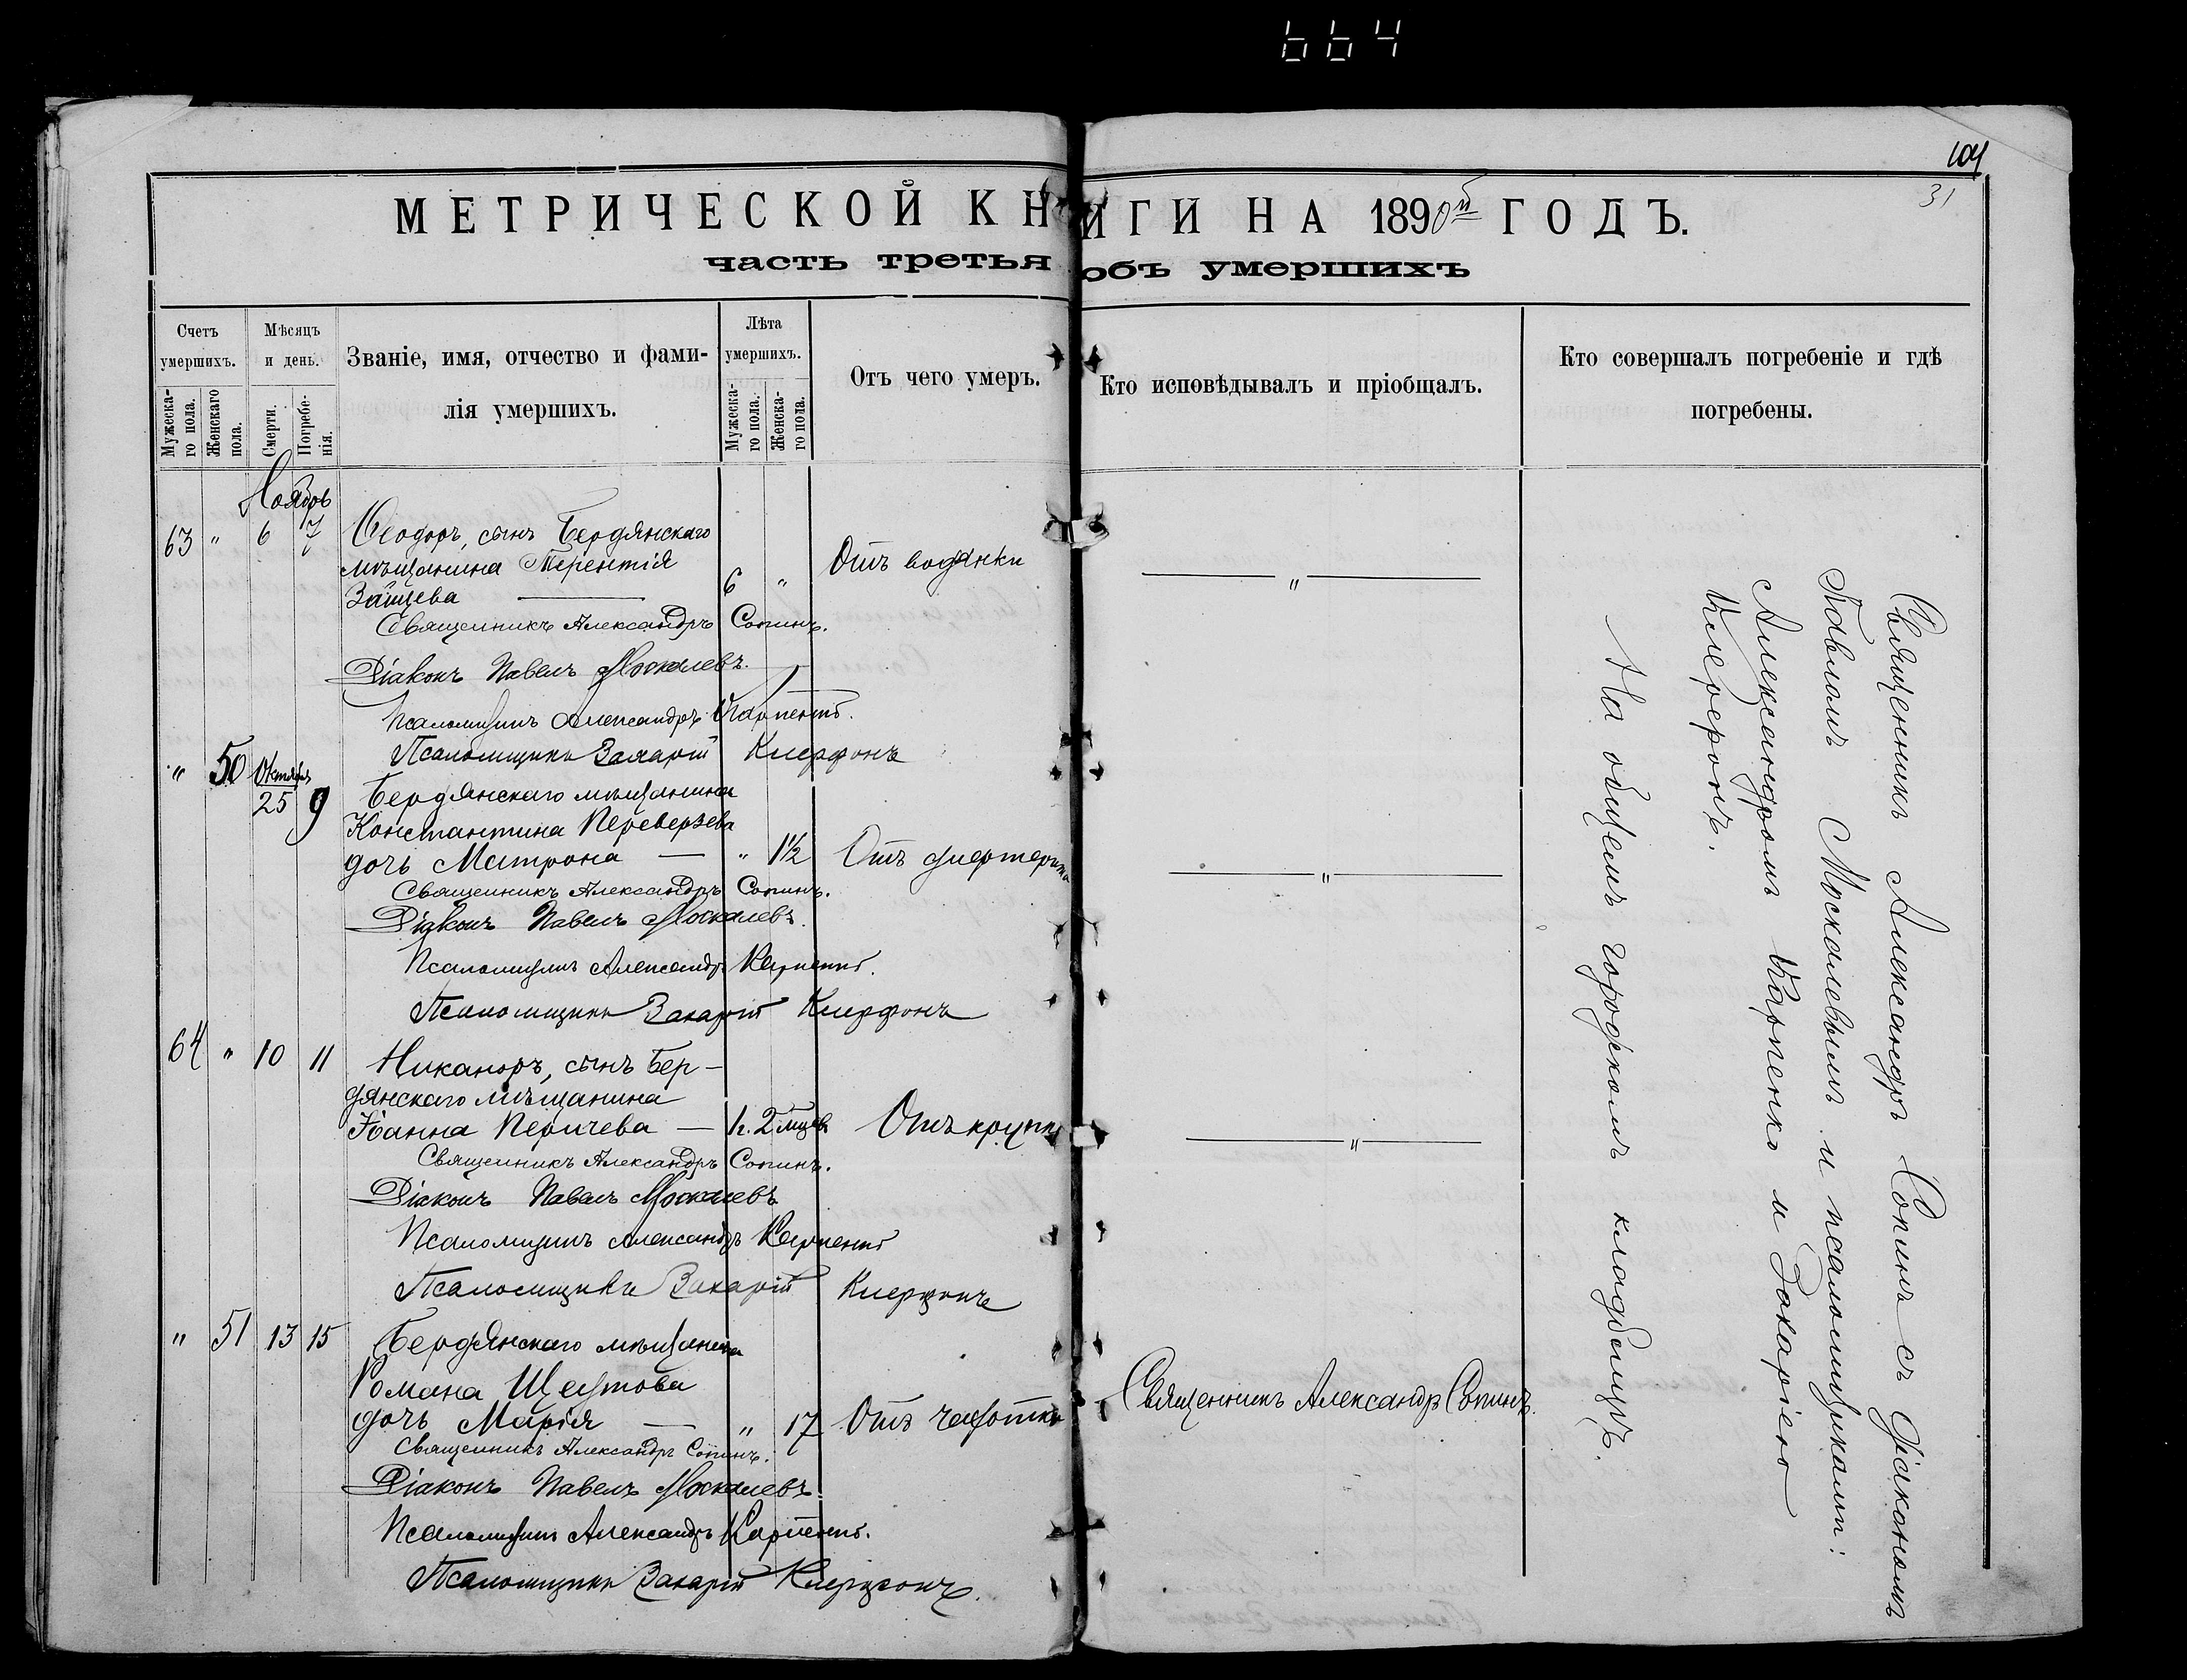 664
104
31
МЕТРИЧЕСКОЙ КНИГИ НА 1890й ГОДЪ.
часть третья объ умершихъ
Счетъ умершихъ.
Мужеска-го пола.
Женскаго пола.
Мѣсяцъ и день.
Смерти.
Погребе-нія.
Званіе, имя, отчество и фами-
лія умершихъ.
Лѣта умершихъ.
Мужеска-го пола.
Женска-го пола.
Отъ чего умеръ.
Кто исповѣдывалъ и пріобщалъ.
Кто совершалъ погребеніе и гдѣ
погребены.
Ноябрь
63 " 6 7 Ѳеодоръ, сынъ Бердянскаго
мѣщанина Терентія
Зайцева 6 " Отъ водянки "
Священникъ Александръ Сопинъ.
Діаконъ Павелъ Москалевъ.
Псаломщикъ Александръ Карпенко.
Псаломщикъ Захарій
" 50 Октября 25 9 Бердянскаго мѣщанина
Константина Переверзева
дочь Матрона — " 1½ Отъ дифтерита "
Священникъ Александръ Сопинъ.
Діаконъ Павелъ Москалевъ.
Псаломщикъ Александръ Карпенко.
Псаломщикъ Захарій
64 " 10 11 Никаноръ, сынъ Бер-
дянскаго мѣщанина
Іоанна — 2 Отъ крупа "
Священникъ Александръ Сопинъ.
Діаконъ Павелъ Москалевъ
Псаломщикъ Александръ Карпенко
Псаломщикъ Захарій
" 51 13 15 Бердянскаго мѣщанина
Романа
дочь Марія — " 17 Отъ чахотки Священникъ Александръ Сопинъ.
Священникъ Александръ Сопинъ.
Діаконъ Павелъ Москалевъ.
Псаломщикъ Александръ Карпенко.
Псаломщикъ Захарій
Священникъ Александръ Сопинъ съ діакономъ
Павломъ Москалевымъ и псаломщиками:
Александромъ Карпенко и Захаріею
На общемъ городскомъ кладбищѣ.